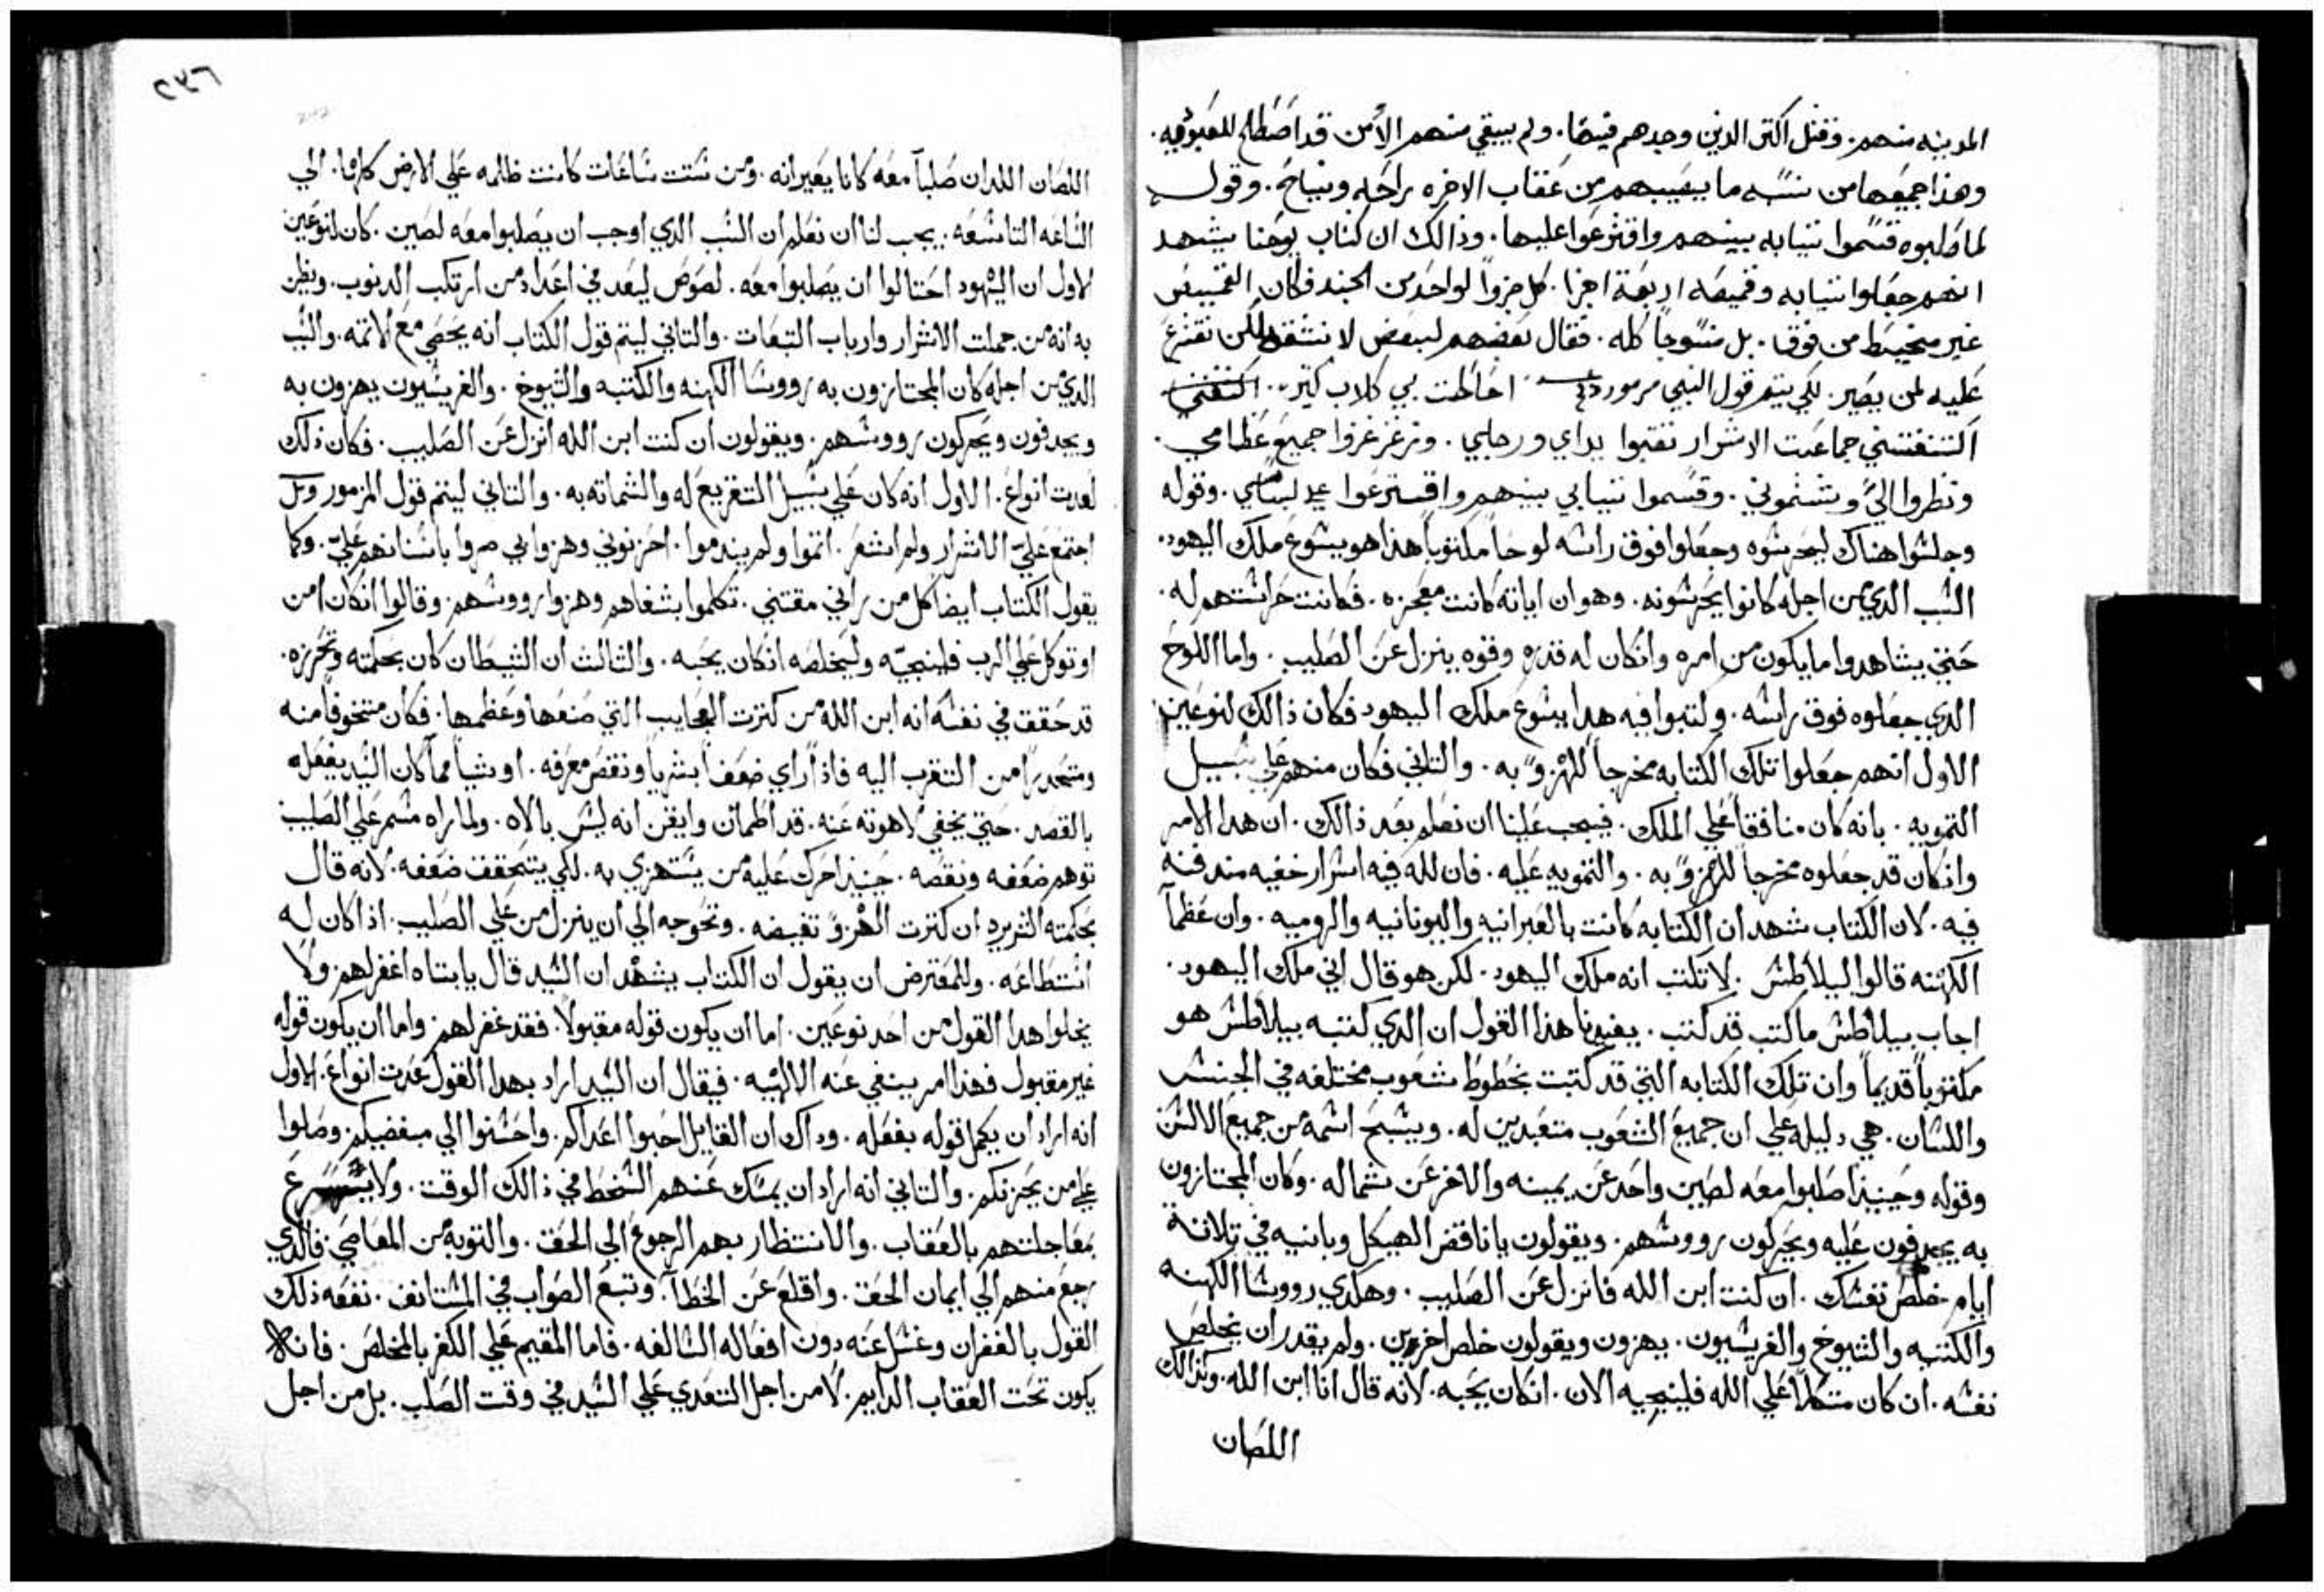 المدينه منهم. وقتل اكتر الدين وجدهم فيها. ولم يبقي منهم الا من قد اصطلح للعبوديه.
وهذا جميعها من نسبه ما يصيبهم من عقاب الاخره راحه ونياح. وقول
لما صلبوه قسموا تيابه بينهم واقترعوا عليها. وذالك ان كتاب يوحنا يشهد
انهم جعلوا تيابه وقميصه اربعة اجزا. كل جزوا لواحد من الجند فكان القميص
غير مخيط من فوق. بل منسوجا كله. فقال بعضهم لبعض لا نشقه لكن نقترع
عليه لمن يصير. لكي يتم قول النبي مزمور احاطت بي كلاب كتير.
اكتنفتني جماعت الاشرار تقبوا يداي ورجلي. وزغزغزوا جميع عظامي.
ونظروا الي وشتموني. وقسموا تيابي بينهم واقسترعوا علي لباسي. وقوله
وجلسوا هناك ليحرسوه وجعلوا فوق راسه لوحا مكتوبا هذا هو يسوع ملك اليهود.
السبب الدي من اجله كانوا يحرسونه. وهو ان اياته كانت معجزه. فكانت حراستهم له.
حتي يشاهدوا ما يكون من امره وانكان له قدره وقوه ينزل عن الصليب. واما اللوح
الدي جعلوه فوق راسه. وكتبوا فيه هدا يسوع ملك اليهود فكان ذالك لنوعين
الاول انهم جعلوا تلك الكتابه مخرجا للهزوٍ به. والتاني فكان منهم علي سبيل
التمويه. بانه كان منافقا علي الملك. فيجب علينا ان نعلم بعد ذالك. ان هدا الامر
وانكان قد جعلوه مخرجا للهزوٍ به. والتمويه عليه. فان لله فيه اسرار خفيه مندفنه
فيه. لان الكتاب شهد ان الكتابه كانت بالعبرانيه واليونانيه والروميه. وان عظما
الكهنه قالوا لبيلاطس. لا تكتب انه ملك اليهود. لكن هو قال اني ملك اليهود.
اجاب بيلاطس ما كتب قد كتب. يفيدنا هذا القول ان الدي كتبه بيلاطس هو
مكتوبا قديما وان تلك الكتابه التي قد كتبت بخطوط شعوب مختلفه في الجنس
واللسان. هي دليله علي ان جميع الشعوب متعبدين له. ويسبح اسمه من جميع الالسن
وقوله وحينيذ اصلبوا معه لصين واحد عن يمينه والاخر عن شماله. وكان المجتازون
به يجدفون عليه ويحركون رووسهم. ويقولون يا ناقض الهيكل وبانيه في تلاتة
ايام خلص نفسك. ان كنت ابن الله فانزل عن الصليب. وهكدي رووسا الكهنه
والكتبه والشيوخ والفريسيون. يهزون ويقولون خلص اخرين. ولم يقدر ان يخلص
نفسه. ان كان متكلا علي الله فلينجيه الان. انكان يحبه. لانه قال انا ابن الله. وكذالك
اللصان
٢٣٦
اللصان اللدان صلبا معه كانا يعيرانه. ومن ستت ساعات كانت ظلمه علي الارض كلها. الي
الساعه التاسعه. يجب لنا ان نعلم ان السبب الدي اوجب ان يصلبوا معه لصين. كان لنوعين
الاول ان اليهود احتالوا ان يصلبوا معه. لصوص ليعد في اعداد من ارتكب الدنوب. ويظن
به انه من جملت الاشرار وارباب التبعات. والتاني ليتم قول الكتاب انه يحصي مع الاتمه. والسبب
الدي من اجله كان المجتازون به ورووسا الكهنه والكتبه والشيوخ. والفريسيون يهزون به
ويجدفون ويحركون رووسهم. ويقولون ان كنت ابن الله انزل عن الصليب. فكان ذلك
لعدت انواع. الاول انه كان علي سبيل التقريع له والشماته به. والتاني ليتم قول المزمور
اجتمع علي الاشرار ولم اشعر. اتموا ولم يندموا. احزنوني وهزوا بي صروا باسنانهم علي. وكما
يقول الكتاب ايضا كل من راني مقتني. تكلموا بشفاهم وهزوا رووسهم. وقالوا انكان امن
او توكل علي الرب فلينجيه وليخلصه انكان يحبه. والتالت ان الشيطان كان بحكمته وتحرزه.
قد حقق في نفسه انه ابن الله من كترت العجايب التي صنعها وعظمها. فكان متخوفا منه
ومتحدرا من التقرب اليه فاذا راي ضعفا بشريا ونقص معرفه. او شيا مما كان السيد يفعله
بالقصد. حتي يخفي لاهوته عنه. قد اطمان وايقن انه ليس بالاه. ولما راه مسمر علي الصليب
توهم ضعفه ونقصه. حينيذ احرك عليه من يستهزي به. لكي يتحقق ضعفه. لانه قال
بحكمته الشريره ان كترت الهزوٍ تغيضه. وتحوجه الي ان ينزل من علي الصليب. اذا كان له
استطاعه. وللمعترض ان يقول ان الكتاب يشهد ان السيد قال يا ابتاه اغفر لهم. ولا
يخلوا هدا القول من احد نوعين. اما ان يكون قوله مقبولا. فقد غفر لهم. واما ان يكون قوله
غير مقبول فهذا امر ينفي عنه الالهيه. فيقال ان السيد اراد بهدا القول عدت انواع. الاول
انه اراد ان يكمل قوله بفعله. وداك ان القايل احبوا اعداكم. واحسنوا الي مبغضيكم. وصلوا
علي من يحزنكم. والتاني انه اراد ان يمسك عنهم السخط في ذالك الوقت. ولا يسرع
بمعاجلتهم بالعقاب. والانتظار بهم الرجوع الي الحق. والتوبه من المعاصي. فالدي
رجع منهم الي ايمان الحق. واقلع عن الخطا. وتبع الصواب في المستانف. نفعه ذلك
القول بالغفران وغسل عنه درن افعاله السالفه. فاما المقيم علي الكفر بالمخلص. فانه
يكون تحت العقاب الدايم. لا من اجل التعدي علي السيد في وقت الصلب. بل من اجل